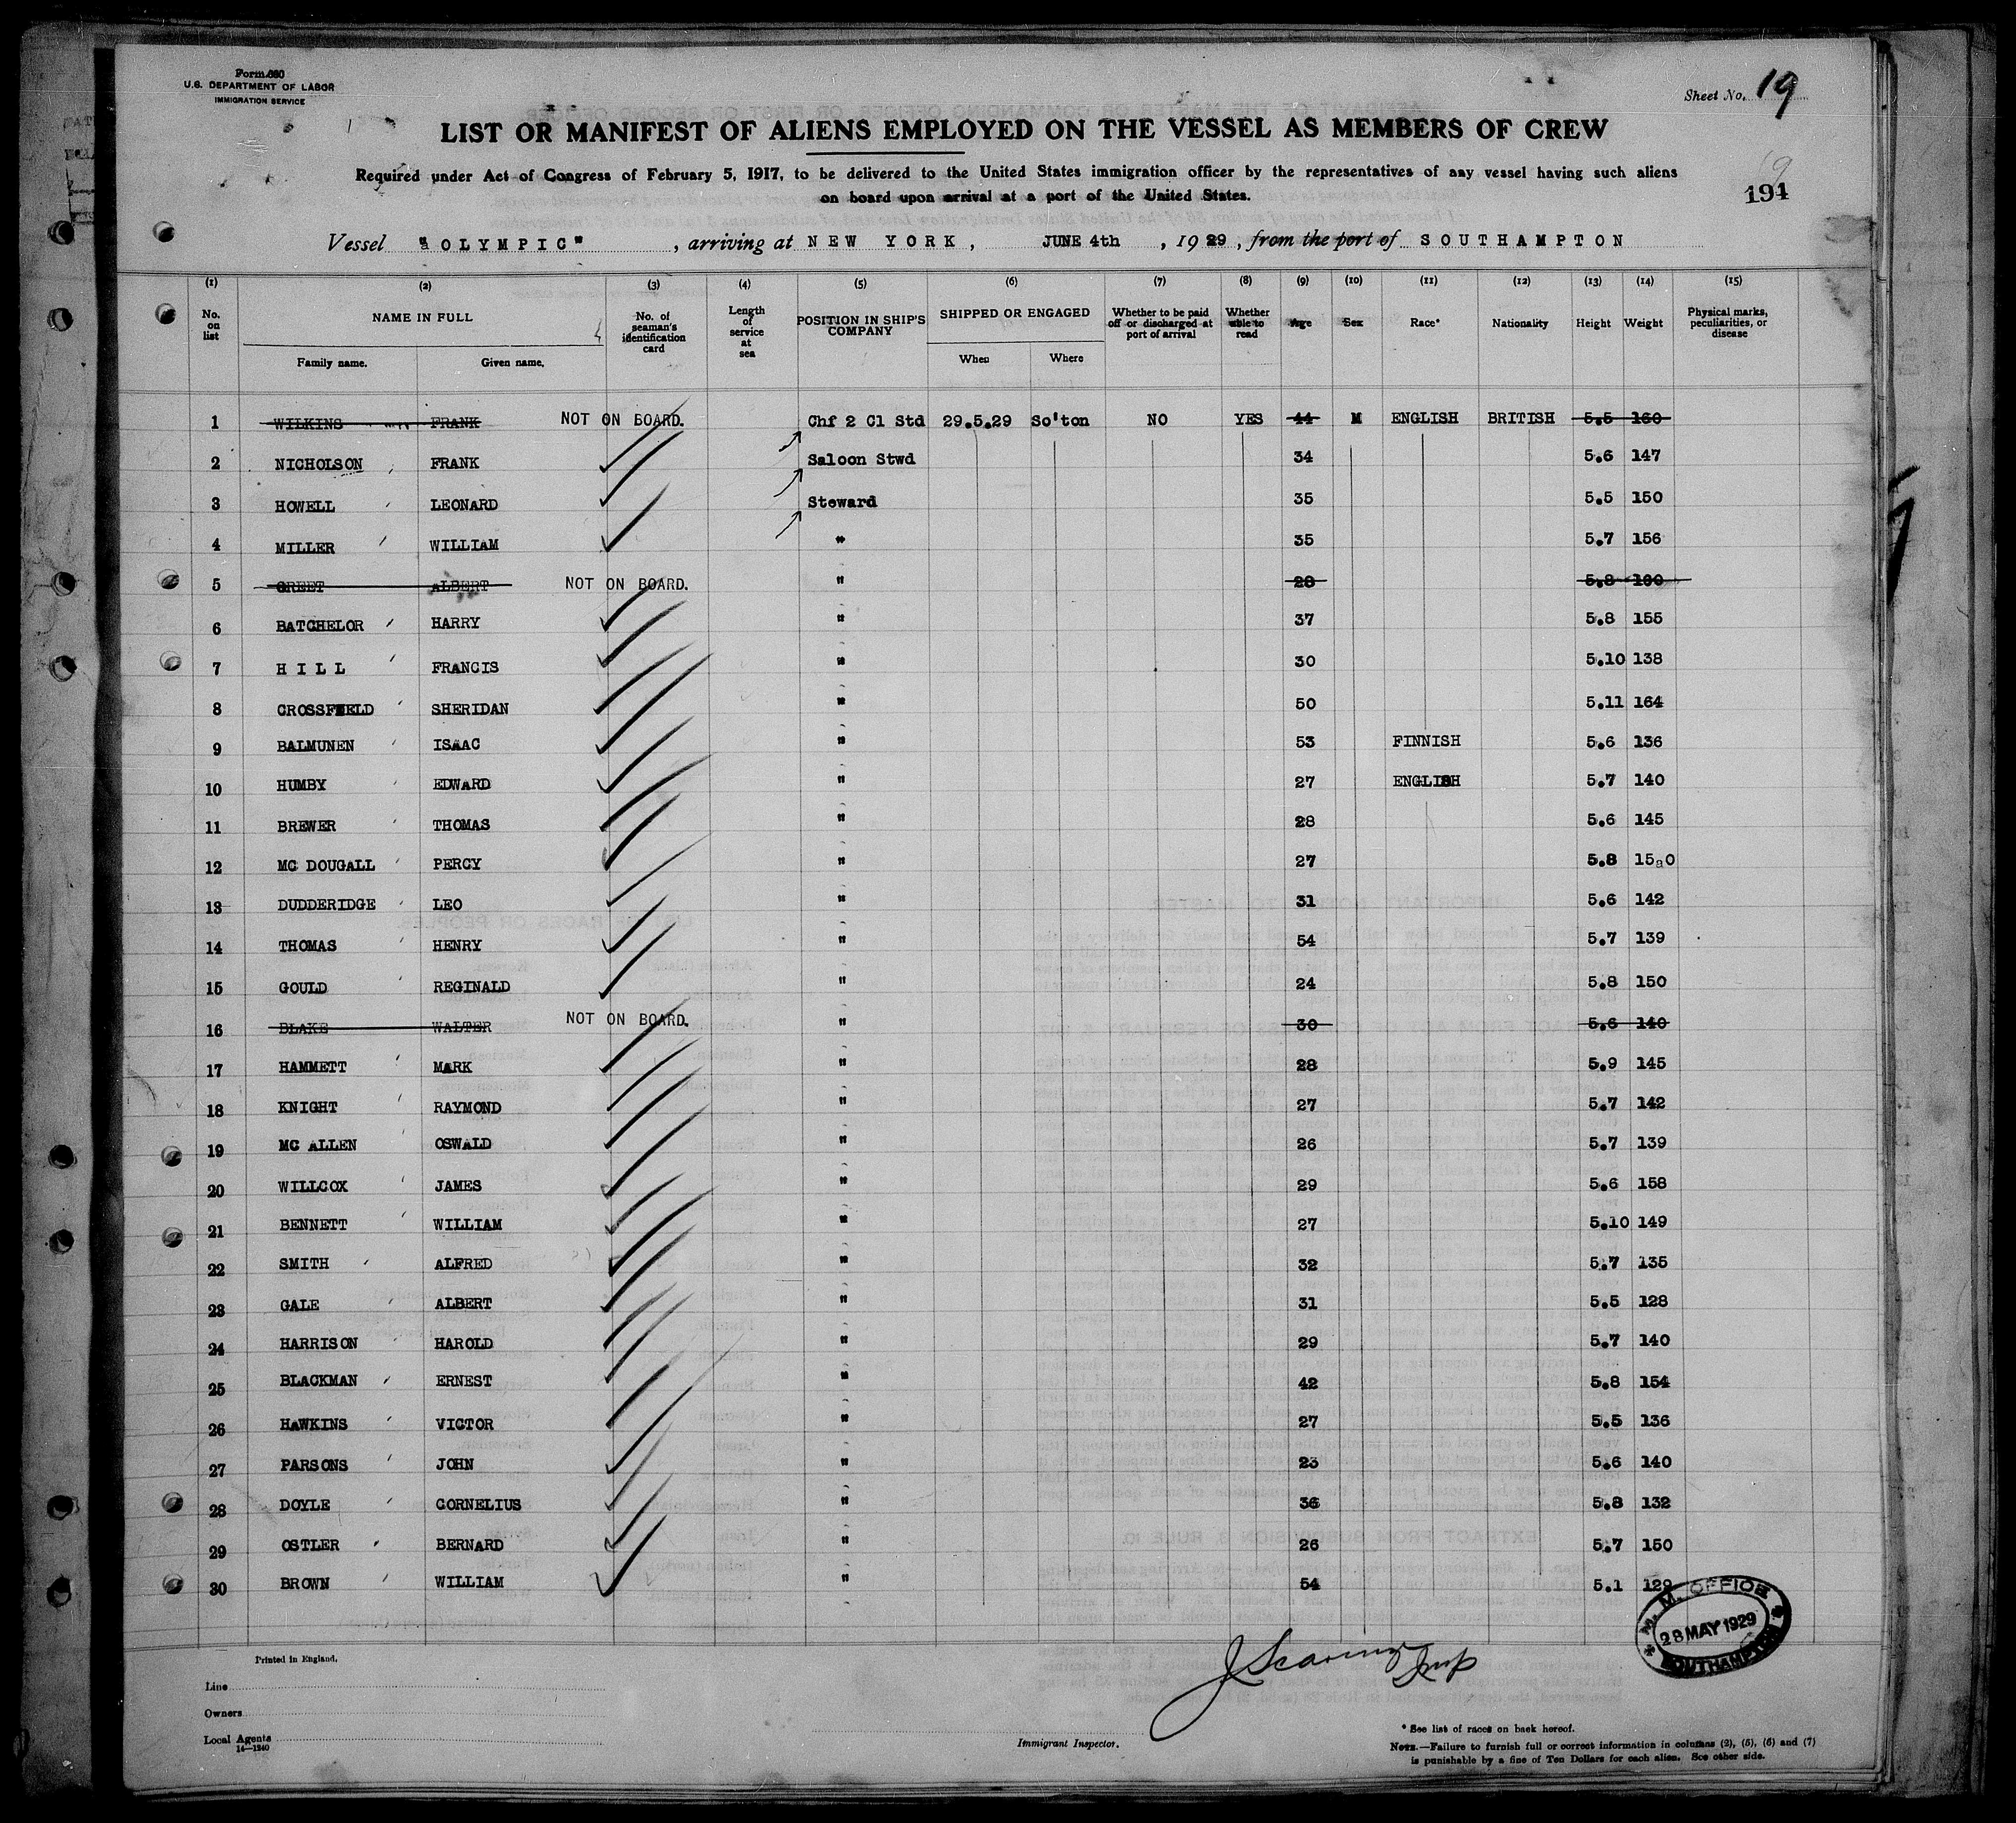 Form 680
U.S. DEPARTMENT OF LABOR
IMMIGRATION SERVICE
Sheet No. 19
LIST OR MANIFEST OF ALIENS EMPLOYED ON THE VESSEL AS MEMBERS OF CREW
Required under Act of Congress of February 5, 1917, to be delivered to the United States immigration officer by the representatives of any vessel having such aliens
on board upon arrival at a port of the United States.
19
194
Vessel "OLYMPIC", arriving at NEW YORK, JUNE 4th, 1929, from the port of SOUTHAMPTON
(1) (2) (3) (4) (5) (6) (7) (8) (9) (10) (11) (12) (13) (14) (15)
No. on list NAME IN FULL Family name. Given name. No. of seaman's identification card Length of service at sea POSITION IN SHIP'S COMPANY SHIPPED OR ENGAGED When Where Whether to be paid off or discharged at port of arrival Whether able to read Age Sex Race* Nationality Height Weight Physical marks, peculiarities, or disease
1 WILKINS FRANK NOT ON BOARD. Chf 2 Cl Std 29.5.29 So'ton NO YES 44 M ENGLISH BRITISH 5.5 160
2 NICHOLSON FRANK Saloon Stwd 34 5.6 147
3 HOWELL LEONARD Steward 35 5.5 150
4 MILLER WILLIAM " 35 5.7 156
5 GREET ALBERT NOT ON BOARD. " 28 5.8
6 BATCHELOR HARRY " 37 5.8 155
7 HILL FRANCIS " 30 5.10 138
8 CROSSFIELD SHERIDAN " 50 5.11 164
9 BALMUNEN ISAAC " 53 FINNISH 5.6 136
10 HUMBY EDWARD " 27 ENGLISH 5.7 140
11 BREWER THOMAS " 28 5.6 145
12 MC DOUGALL PERCY " 27 5.8 15a0
13 DUDDERIDGE LEO " 31 5.6 142
14 THOMAS HENRY " 54 5.7 139
15 GOULD REGINALD " 24 5.8 150
16 BLAKE WALTER NOT ON BOARD. " 30 5.6 140
17 HAMMETT MARK " 28 5.9 145
18 KNIGHT RAYMOND " 27 5.7 142
19 MC ALLEN OSWALD " 26 5.7 139
20 WILLCOX JAMES " 29 5.6 158
21 BENNETT WILLIAM " 27 5.10 149
22 SMITH ALFRED " 32 5.7 135
23 GALE ALBERT " 31 5.5 128
24 HARRISON HAROLD " 29 5.7 140
25 BLACKMAN ERNEST " 42 5.8 154
26 HAWKINS VICTOR " 27 5.5 136
27 PARSONS JOHN " 23 5.6 140
28 DOYLE CORNELIUS " 36 5.8 132
29 OSTLER BERNARD " 26 5.7 150
30 BROWN WILLIAM " 54 5.1 129
M. M. OFFICE
28 MAY 1929
SOUTHAMPTON
Printed in England.
Line
Owners
Local Agents
14—1240
Immigrant Inspector.
* See list of races on back hereof.
NOTE.—Failure to furnish full or correct information in columns (2), (5), (6) and (7)
is punishable by a fine of Ten Dollars for each alien. See other side.